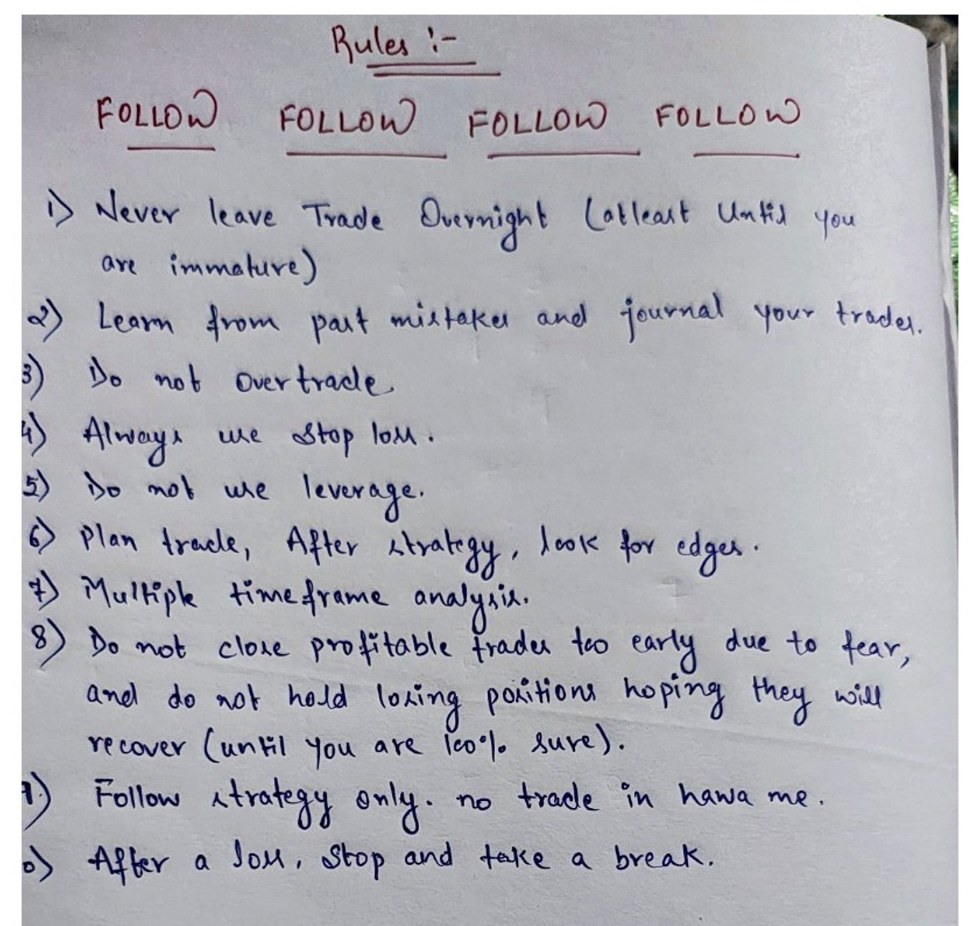 Rules :-
FOLLOW FOLLOW FOLLOW FOLLOW
1) Never leave Trade Overnight (atleast Until you
are immature)
2) Learn from past mistakes and journal your trades.
3) Do not overtrade.
4) Always use Stop loss.
5) Do not use leverage.
6) Plan trade, After strategy, look for edges.
7) Multiple timeframe analysis.
8) Do not close profitable trades too early due to fear,
and do not hold losing positions hoping they will
recover (until you are 100% sure).
9) Follow strategy only. no trade in hawa me.
0) After a loss, Stop and take a break.